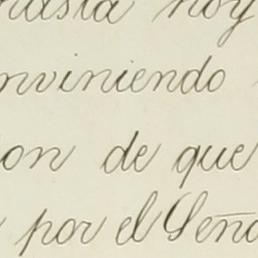 hasta hoy
nviniendo
ion de que
por el Seño